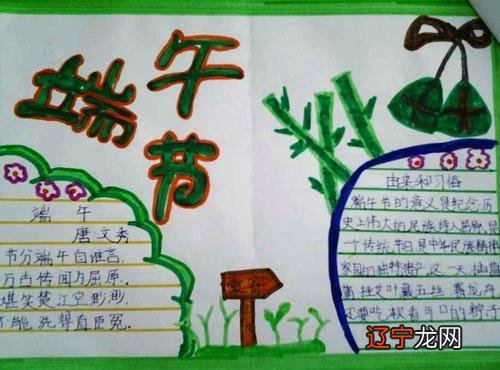 端午节
端 午
唐 文秀
节分端午自谁言,
万古传闻为屈原。
堪笑楚江空渺渺,
不能洗得直臣冤。
由来和习俗
端午节的意义是纪念历
史上伟大的民族诗人屈原,是
一个传统节日,是中华民族精神
家园的独特遗产,这一天,插菖
蒲,挂艾叶,戴五丝,赛龙舟
还要吃 可口的粽子
辽宁龙网